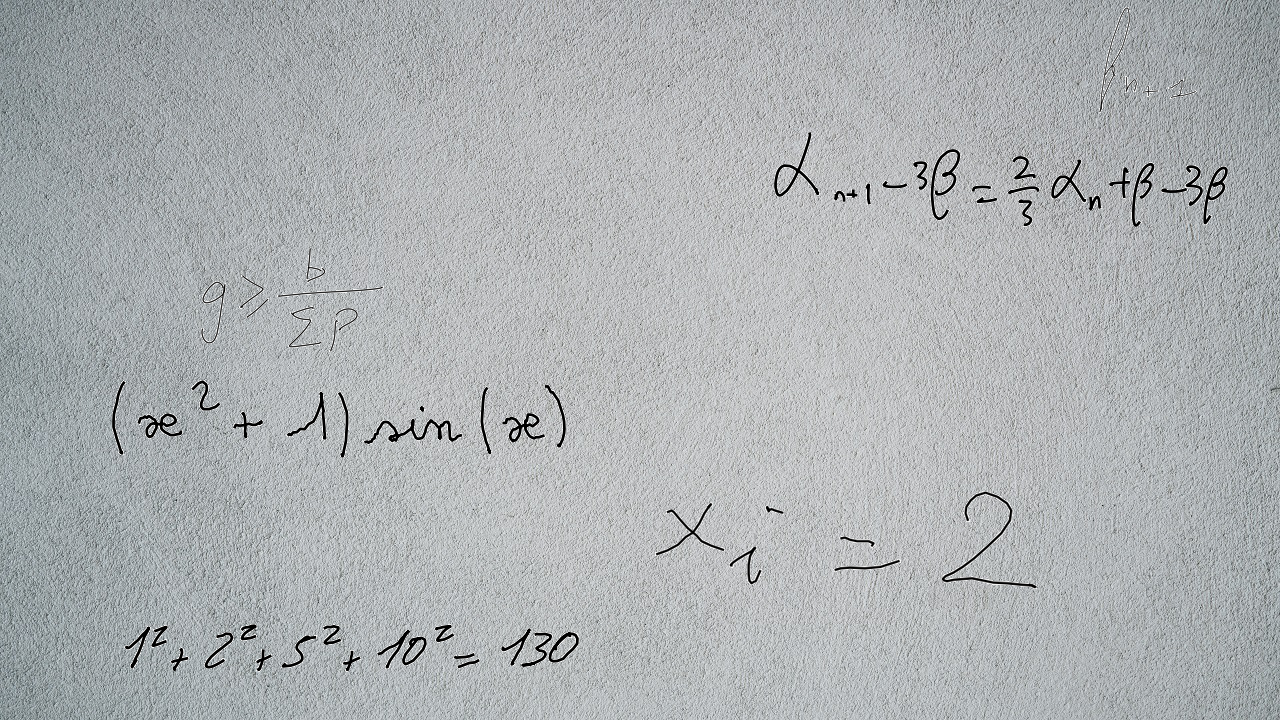 fₙ₊₁
αₙ₊₁ − 3β = 2/3 αₙ + β − 3β
g ≥ b / Σ p
(x² + 1) sin(x)
xᵢ = 2
1² + 2² + 5² + 10² = 130